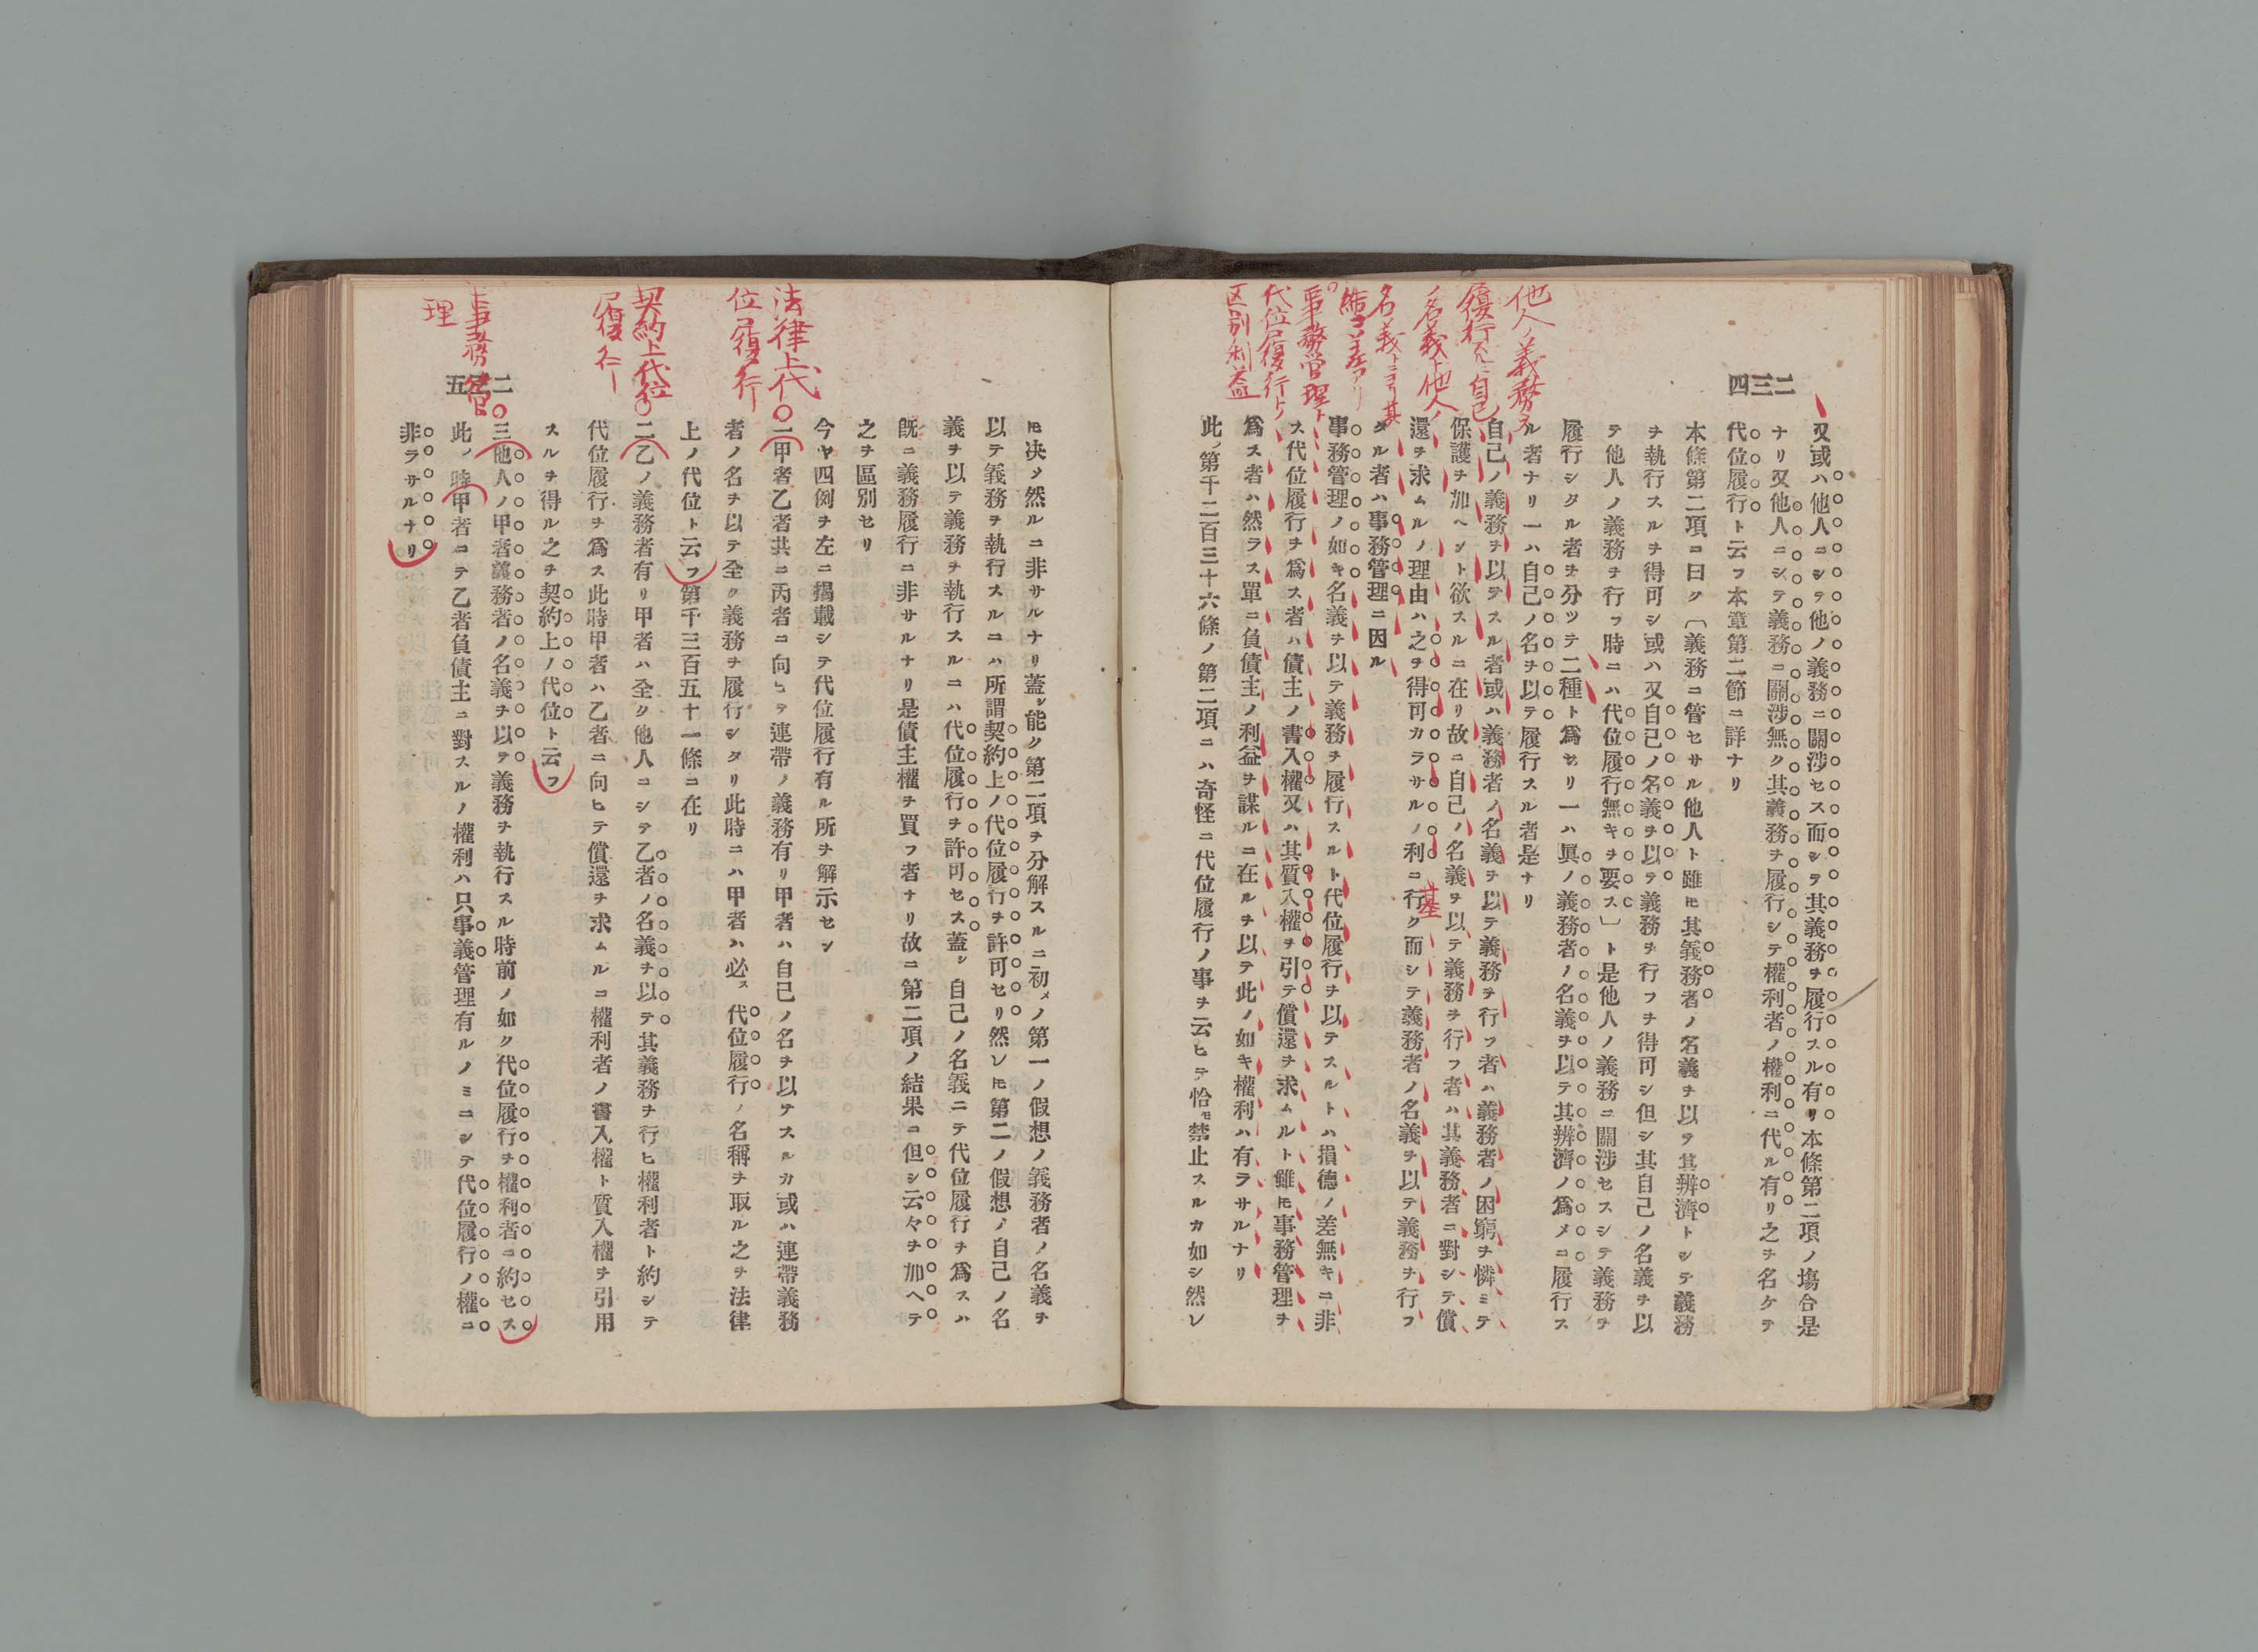 二三四
又或ハ他人ニシテ他ノ義務ニ關渉セス而シテ其義務ヲ履行スル有リ本條第二項ノ塲合是
ナリ又他人ニシテ義務ニ關渉無ク其義務ヲ履行シテ權利者ノ權利ニ代ル有リ之ヲ名ケテ
代位履行ト云フ本章第二節ニ詳ナリ
本條第二項ニ曰ク〔義務ニ管セサル他人ト雖𪜈其義務者ノ名義ヲ以テ其辨濟トシテ義務
ヲ執行スルヲ得可シ或ハ又自己ノ名義ヲ以テ義務ヲ行フヲ得可シ但シ其自己ノ名義ヲ以
テ他人ノ義務ヲ行フ時ニハ代位履行無キヲ要ス〕ト是他人ノ義務ニ關渉セスシテ義務ヲ
履行シタル者ヲ分ツテ二種ト爲セリ一ハ眞ノ義務者ノ名義ヲ以テ其辨濟ノ爲メニ履行ス
ル者ナリ一ハ自己ノ名ヲ以テ履行スル者是ナリ
自己ノ義務ヲ以テスル者或ハ義務者ノ名義ヲ以テ義務ヲ行フ者ハ義務者ノ困窮ヲ憐ミテ
保護ヲ加ヘント欲スルニ在リ故ニ自己ノ名義ヲ以テ義務ヲ行フ者ハ其義務者ニ對シテ償
還ヲ求ムルノ理由ハ之ヲ得可カラサルノ利ニ行ク而シテ義務者ノ名義ヲ以テ義務ヲ行フ
タル者ハ事務管理ニ因ル
事務管理ノ如キ名義ヲ以テ義務ヲ履行スルト代位履行ヲ以テスルトハ損德ノ差無キニ非
ス代位履行ヲ爲ス者ハ債主ノ書入權又ハ其質入權ヲ引テ償還ヲ求ムルト雖𪜈事務管理ヲ
爲ス者ハ然ラス單ニ負債主ノ利益ヲ謀ルニ在ルヲ以テ此ノ如キ權利ハ有ラサルナリ
此ノ第千二百三十六條ノ第二項ニハ奇怪ニ代位履行ノ事ヲ云ヒテ恰モ禁止スルカ如シ然レ
他人ノ義務ヲ
履行スルニ自己
ノ名義ト他人ノ
名義トニヨリ其
結
事務管理ト
代位履行トノ
区別利益
基
二三五
𪜈决シテ然ルニ非サルナリ蓋シ能ク第二項ヲ分解スルニ初メノ第一ノ假想ノ義務者ノ名義ヲ
以テ義務ヲ執行スルニハ所謂契約上ノ代位履行ヲ許可セリ然レ𪜈第二ノ假想ノ自己ノ名
義ヲ以テ義務ヲ執行スルニハ代位履行ヲ許可セス蓋シ自己ノ名義ニテ代位履行ヲ爲スハ
既ニ義務履行ニ非サルナリ是債主權ヲ買フ者ナリ故ニ第二項ノ結果ニ但シ云々ヲ加ヘテ
之ヲ區別セリ
今ヤ四例ヲ左ニ揭載シテ代位履行有ル所ヲ解示セン
一甲者乙者共ニ丙者ニ向ヒテ連帶ノ義務有リ甲者ハ自己ノ名ヲ以テスルカ或ハ連帶義務
者ノ名ヲ以テ全ク義務ヲ履行シタリ此時ニハ甲者ハ必ス代位履行ノ名稱ヲ取ル之ヲ法律
上ノ代位ト云フ第千三百五十一條ニ在リ
二乙ノ義務者有リ甲者ハ全ク他人ニシテ乙者ノ名義ヲ以テ其義務ヲ行ヒ權利者ト約シテ
代位履行ヲ爲ス此時甲者ハ乙者ニ向ヒテ償還ヲ求ムルニ權利者ノ書入權ト質入權ヲ引用
スルヲ得ル之ヲ契約上ノ代位ト云フ
三他人ノ甲者義務者ノ名義ヲ以テ義務ヲ執行スル時前ノ如ク代位履行ヲ權利者ニ約セス
此ノ時甲者ニテ乙者負債主ニ對スルノ權利ハ只事義管理有ルノミニシテ代位履行ノ權ニ
非ラサルナリ
法律上代
位履行
契約上代位
履行
事務管
理